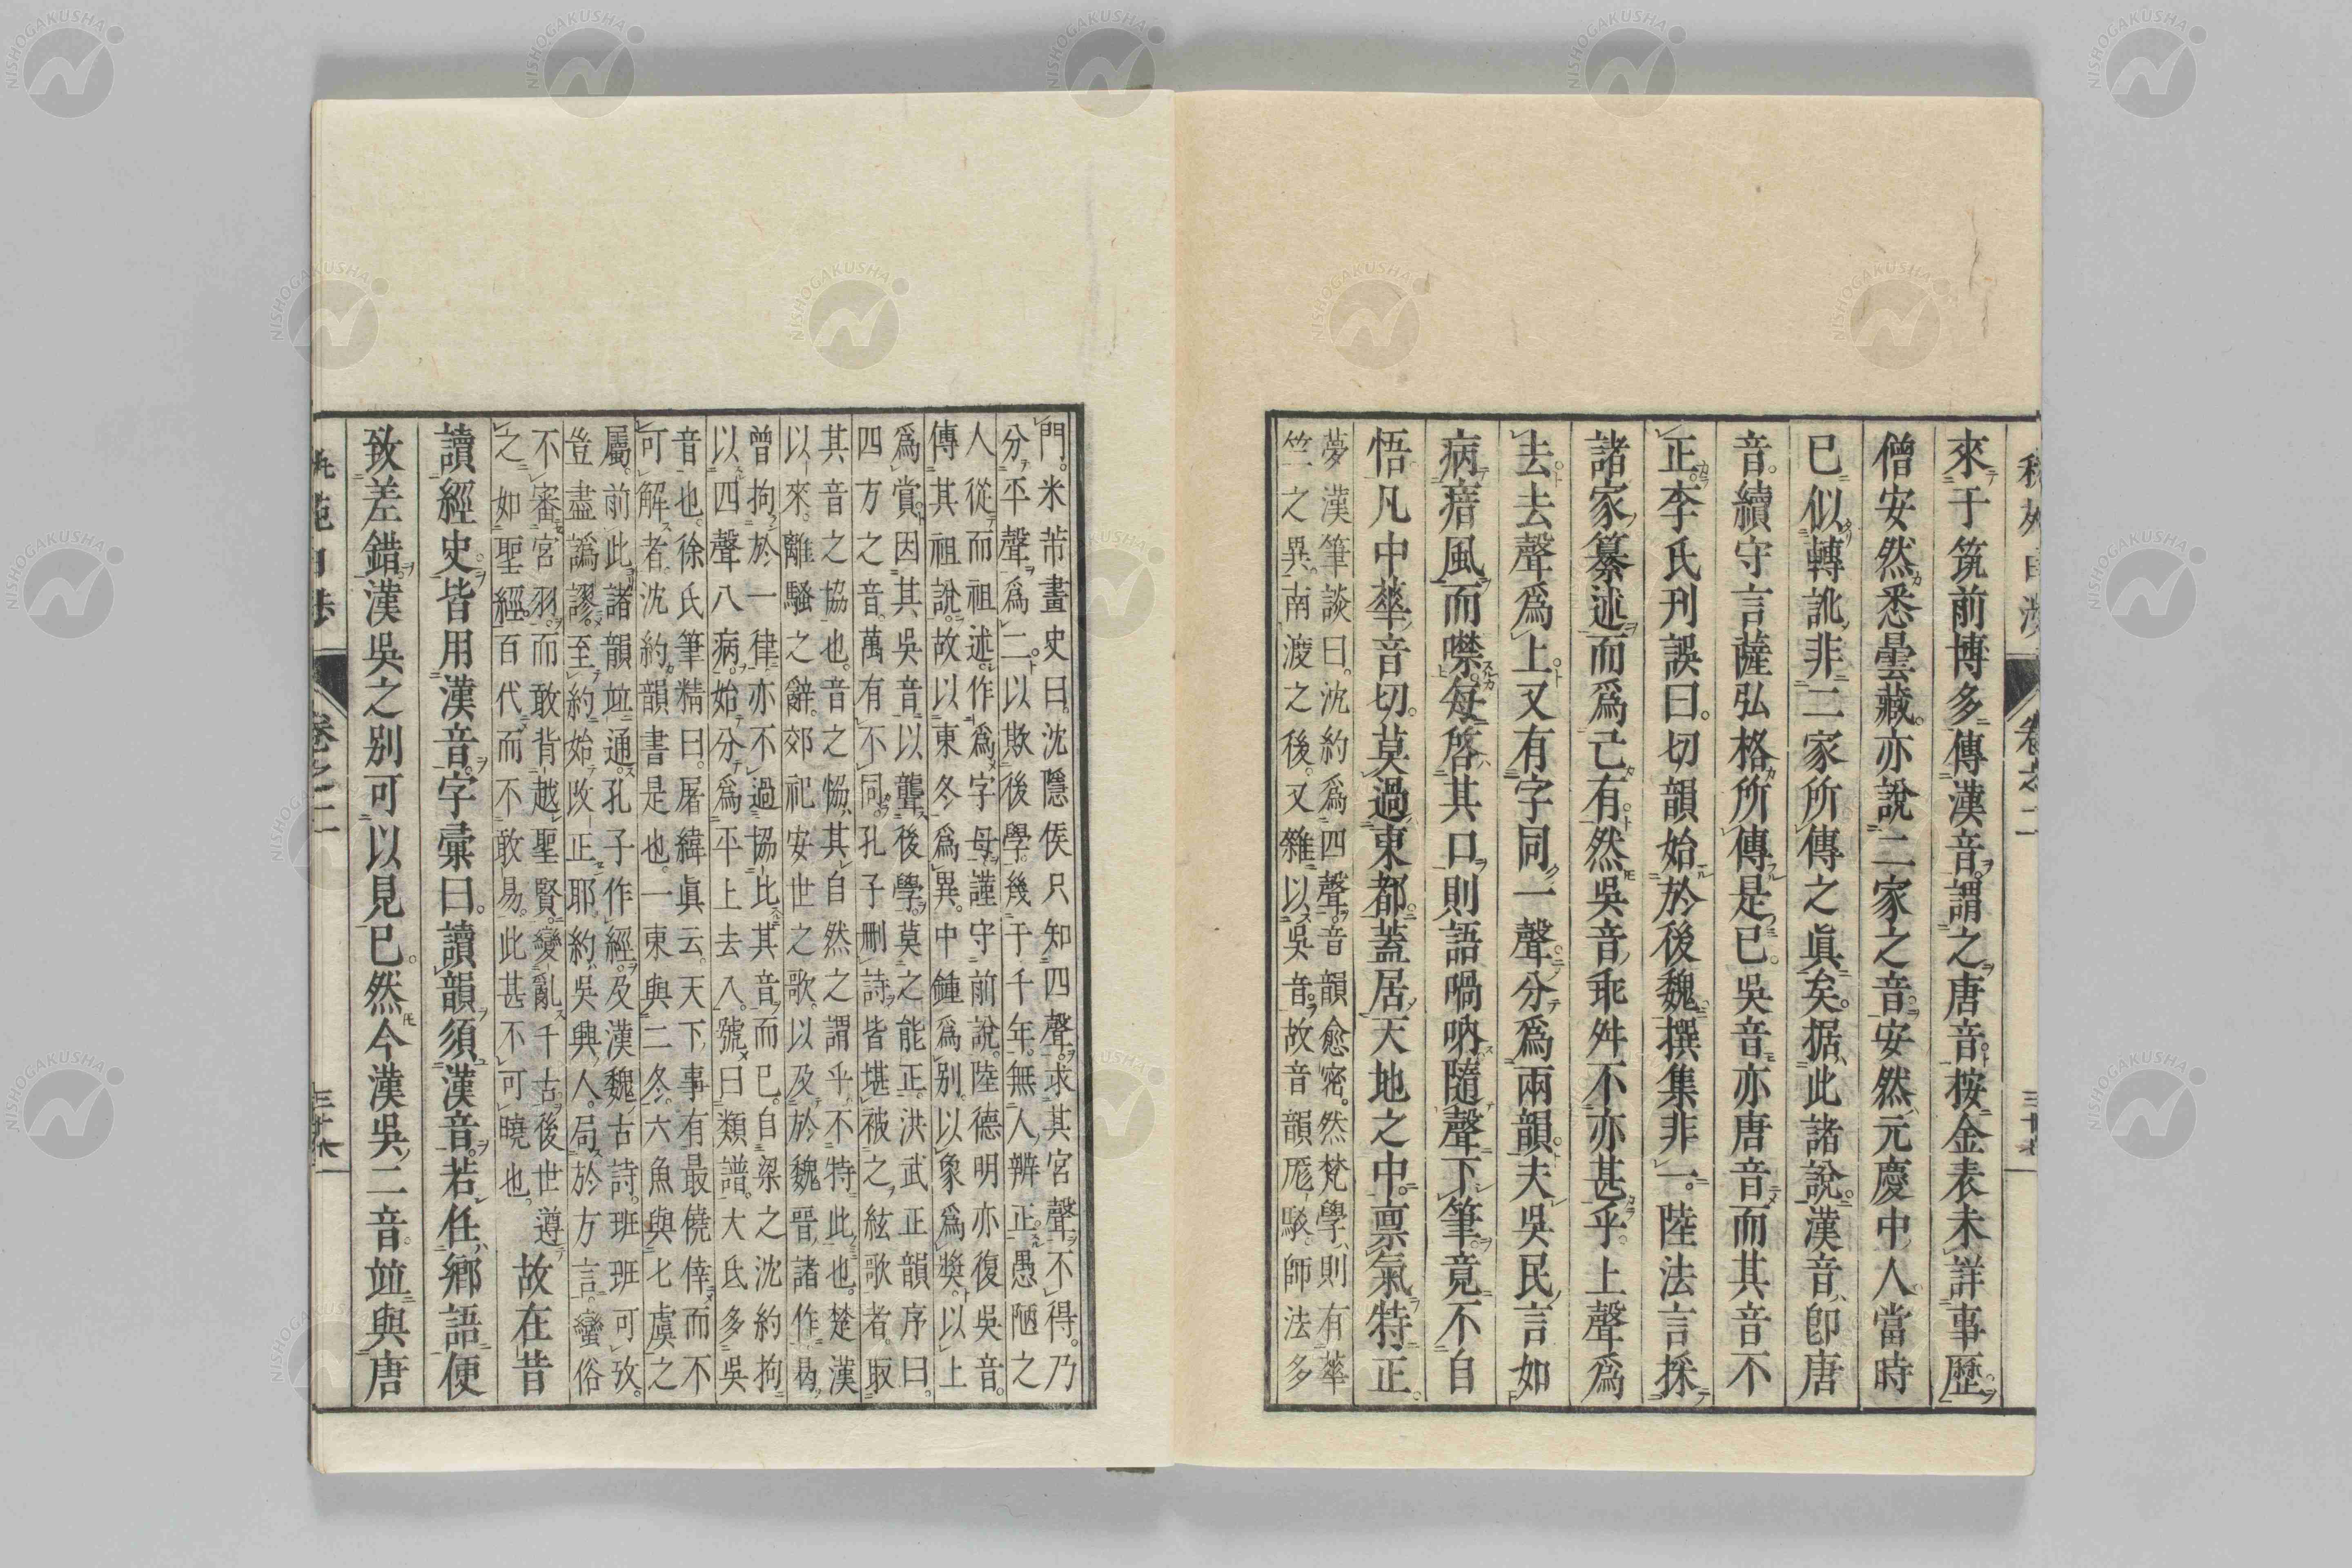 來于筑前博多傳漢音。謂之唐音。按金表未詳事歷。
僧安然悉曇藏。亦說二家之音。安然元慶中人。當時
已似轉訛非二家所傳之眞矣。据此諸說。漢音卽唐
音。續守言薩弘格所傳是已。吳音亦唐音而其音不
正。李氏刋誤曰。切韻始於後魏。撰集非一。陸法言採
諸家纂述而爲己有。然吳音乖舛不亦甚乎。上聲爲
去。去聲爲上。又有字同一聲。分爲兩韻。夫吳民言如
病瘖風而噤。每啓其口則語喎吶。隨聲下筆。竟不自
悟。凡中華音切。莫過東都。蓋居天地之中。禀氣特正。
夢漢筆談曰。沈約爲四聲。音韻愈密。然梵學則有華
竺之異。南渡之後。又雜以吳音。故音韻厖駁。師法多
門。米芾畫史曰。沈隱侯只知四聲。求其宮聲不得。乃
分平聲爲二。以欺後學。幾于千年。無人辨正。愚陋之
人從而祖述。作爲字母。謹守前說。陸德明亦復吳音。
傳其祖說。故以東冬爲異。中鍾爲別。以象爲獎。以上
爲賞。因其吳音。以聾後學。莫之能正。洪武正韻序曰。
四方之音。萬有不同。孔子刪詩。皆堪被之絃歌者。取
其音之協也。音之恊。其自然之謂乎。不特此也。楚漢
以來。離騷之辭。郊祀安世之歌。以及於魏晉諸作。曷
曾拘於一律。亦不過協比其音而已。自梁之沈約拘
以四聲八病。始分爲平上去入。號曰類譜。大氐多吳
音也。徐氏筆精曰。屠緯眞云。天下事有最僥倖而不
可解者。沈約韻書是也。一東與二冬。六魚與七虞之
屬。前此諸韻竝通。孔子作經。及漢魏古詩。班班可攷。
豈盡譌謬。至約始改正耶。約吳興人。局於方言。蠻俗
不審宮羽。而敢背越聖賢。變亂千古。後世遵
之如聖經。百代而不敢易。此甚不可曉也。
故在昔
讀經史。皆用漢音。字彙曰。讀韻須漢音。若任鄉語便
致差錯。漢吳之別可以見已。然今漢吳二音。竝與唐
卷之二